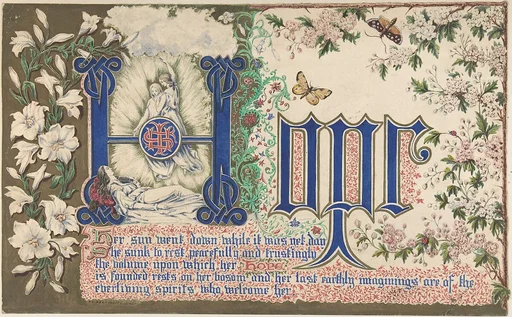 Hope
Her sun went down while it was yet day
She sunk to rest peacefully and trustingly
the volume upon which her Hope
is founded rests on her bosom and her last earthly imaginings are of the
everliving spirits who welcome her.